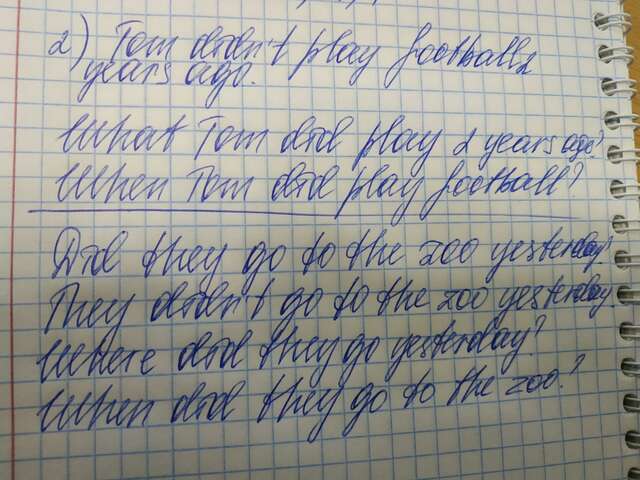 2) Tom didn't play football 2
years ago.
What Tom did play 2 years ago?
When Tom did play football?
Did they go to the zoo yesterday?
They didn't go to the zoo yesterday.
Where did they go yesterday?
When did they go to the zoo?